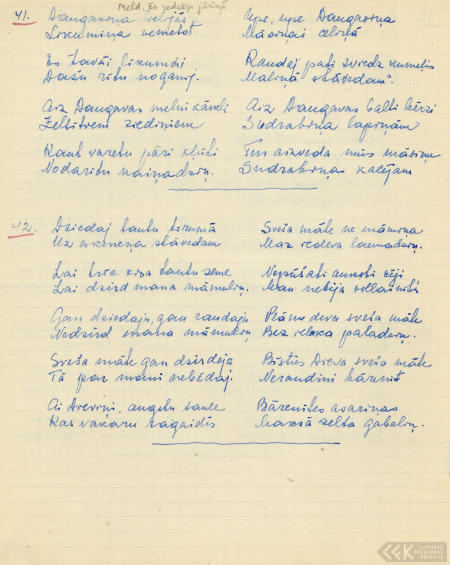 Meld. Es dziedāju jūriņā
41. Daugaviņa lielijās
Līkumiņu nemetot
Es tavāi līkumāi
Dažu ritu noganij.
Aiz Daugavas melni kāvli
Zeltītiem ziediņiem
Kaut varētu pāri kļūti
Nodarītu vaiņadziņ.
Upe, upe Daugaviņa
Māsiņai celiņā
Raudaj pati sviedz kumeliņ
Maliņā stāvēdam.
Aiz Daugavas balti bērzi
Sudrabiņa lapiņām
Tur aizveda mūs māsiņu
Sudrabiņa kalējam
42. Dziedaj tautu tirumā
Uz akmeņa stāvēdam
Lai trīc visa tautu zeme
Lai dzird mana māmuliņ.
Gan dziedaju, gan raudaju
Nedzird mana māmuliņ
Sveša māte gan dzirdēja
Tā par mani nebēdāj.
Ai Dieviņi, augstu saule
Kas vakaru sagaidīs
Sveša māte ne māmiņa
Maz iedeva launadziņ.
Nepūšati auksti vēji
Man nebija villainīt
Plānu deva sveša māte
Bez ieloka paladziņ.
Bīsties Dieva sveša māte
Neraudini bārenīt
Bārenītes asariņas
Maksā zelta gabaliņ.
LATVIEŠU
FOLKLORAS
KRĀTUVE